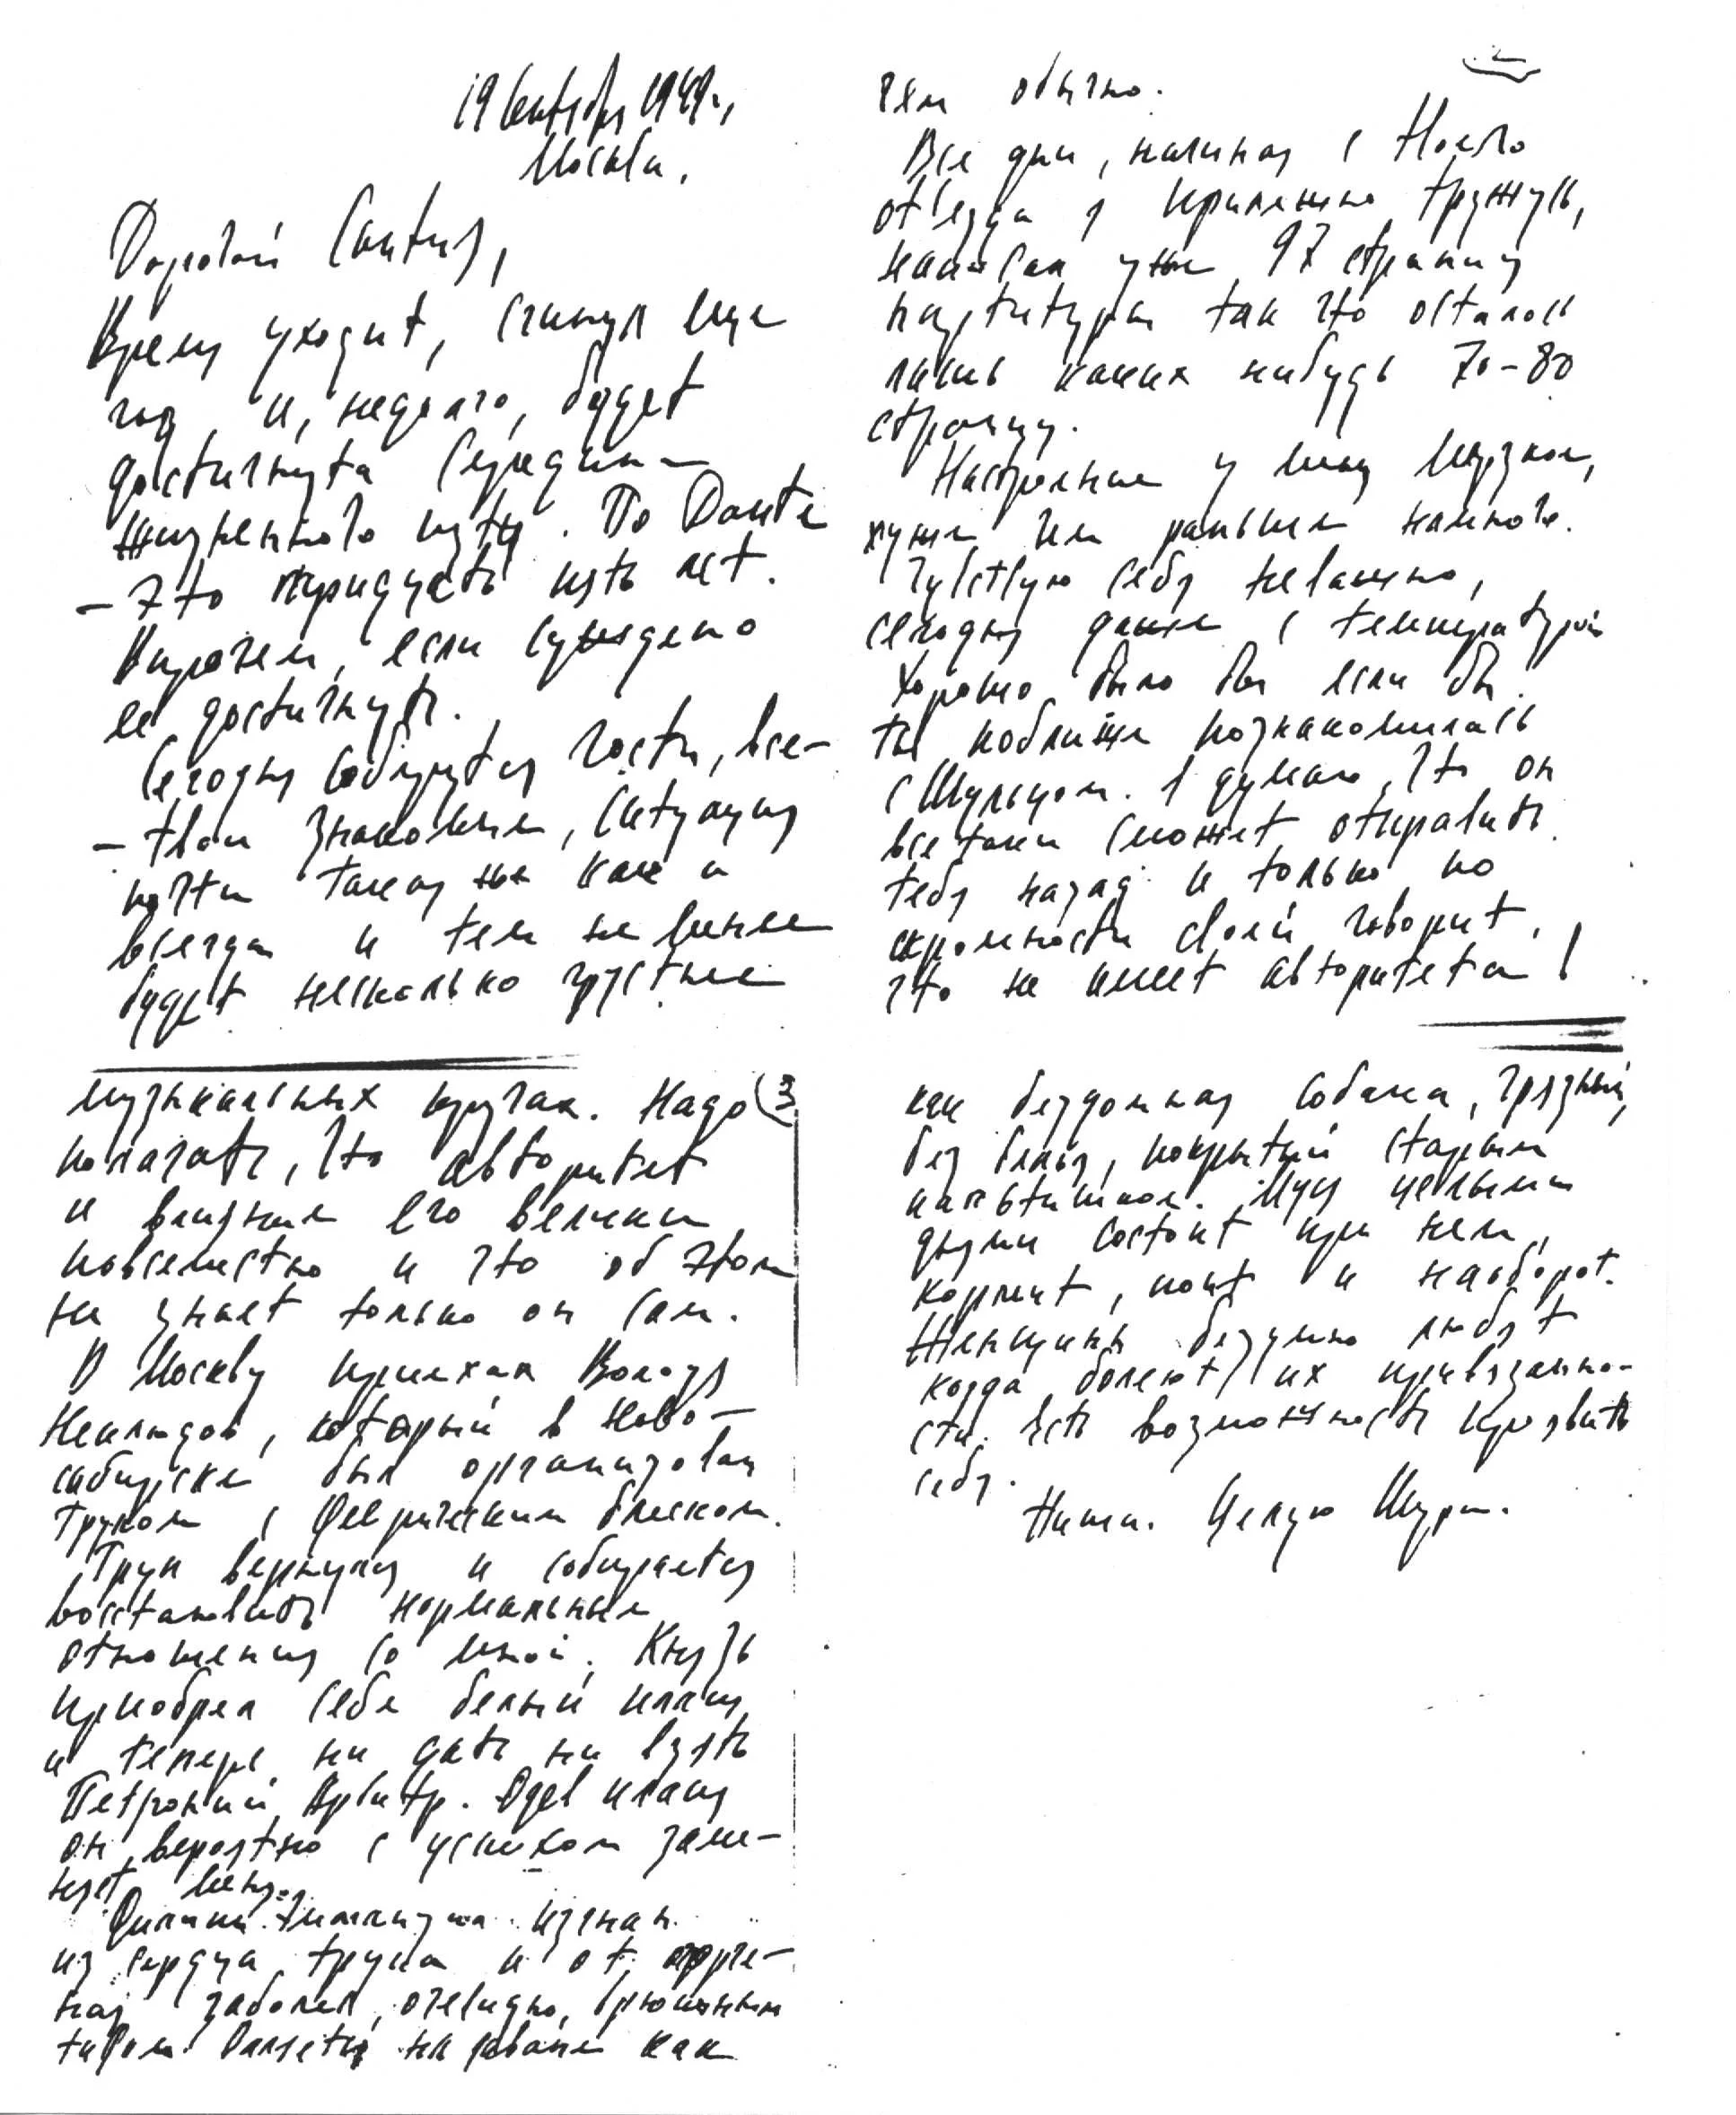 19 сентября 1944 г.,
Москва.
Дорогой
Время уходит, сгинул еще
год и, недолго, будет
достигнута середина
жизненного пути. По Данте
– это тридцать пять лет.
Впрочем, если суждено
ее достигнуть.
Сегодня соберутся гости, все –
– твои знакомые, ситуация
почти такая же как и
всегда и тем не менее
будет несколько грустнее
2
чем обычно.
Все дни, начиная с
отъезда я прилежно тружусь,
написал уже 97 страниц
партитуры так что осталось
лишь каких нибудь 70–80
страниц.
Настроение у меня мерзкое,
хуже чем раньше намного.
Чувствую себя неважно,
сегодня даже с температурой
Хорошо было бы если бы
ты поближе познакомилась
с Шульцом. Я думаю, что он
все таки сможет отправить
тебя назад и только по
скромности своей говорит,
что не имеет авторитета в
музыкальных кругах. Надо (3
полагать, что авторитет
и влияние его велики
повсеместно и что об этом
не знает только он сам.
В Москву приехал Володя
Неклюдов, который в Ново–
сибирске был организован
трупом с феерическим блеском.
Труп вернулся и собирается
восстановить нормальные
отношения со мной. Князь
приобрел себе белый плащ
и теперь ни дать ни взять
Петроний Арбитр. Одев плащ
он вероятно с успехом заме–
нят меня.
изгнан
из сердца трупа и от огорче–
ния заболел, очевидно, брюшным
тифом. Валяется на диване как
как бездомная собака, грязный,
без белья, покрытый старым
пальтишком. Муся целыми
днями состоит при нем,
кормит, поит и наоборот.
Женщины безумно любят
когда болеют их привязанно–
сти. Есть возможность проявить
себя.
Пиши. Целую Шура.